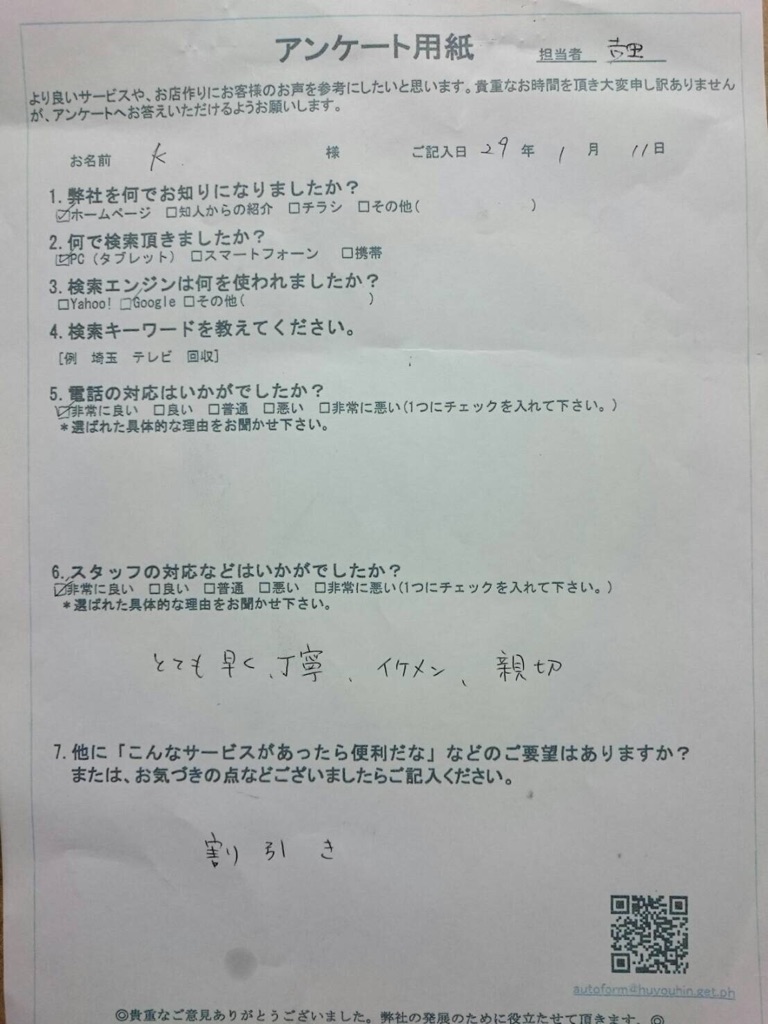 アンケート用紙 担当者 吉田
より良いサービスや、お店作りにお客様のお声を参考にしたいと思います。貴重なお時間を頂き大変申し訳ありません
が、アンケートへお答えいただけるようお願いします。
お名前 K 様 ご記入日 29 年 1 月 11 日
1. 弊社を何でお知りになりましたか？
☑ホームページ □知人からの紹介 □チラシ □その他( )
2. 何で検索頂きましたか？
☑PC（タブレット） □スマートフォーン □携帯
3. 検索エンジンは何を使われましたか？
□Yahoo! □Google □その他( )
4. 検索キーワードを教えてください。
[例 埼玉 テレビ 回収]
5. 電話の対応はいかがでしたか？
☑非常に良い □良い □普通 □悪い □非常に悪い(1つにチェックを入れて下さい。)
＊選ばれた具体的な理由をお聞かせ下さい。
6. スタッフの対応などはいかがでしたか？
☑非常に良い □良い □普通 □悪い □非常に悪い(1つにチェックを入れて下さい。)
＊選ばれた具体的な理由をお聞かせ下さい。
とても早く、丁寧、イケメン、親切
7. 他に「こんなサービスがあったら便利だな」などのご要望はありますか？
または、お気づきの点などございましたらご記入ください。
割り引き
autoform@huyouhin.get.ph
◎貴重なご意見ありがとうございました。弊社の発展のために役立たせて頂きます。◎